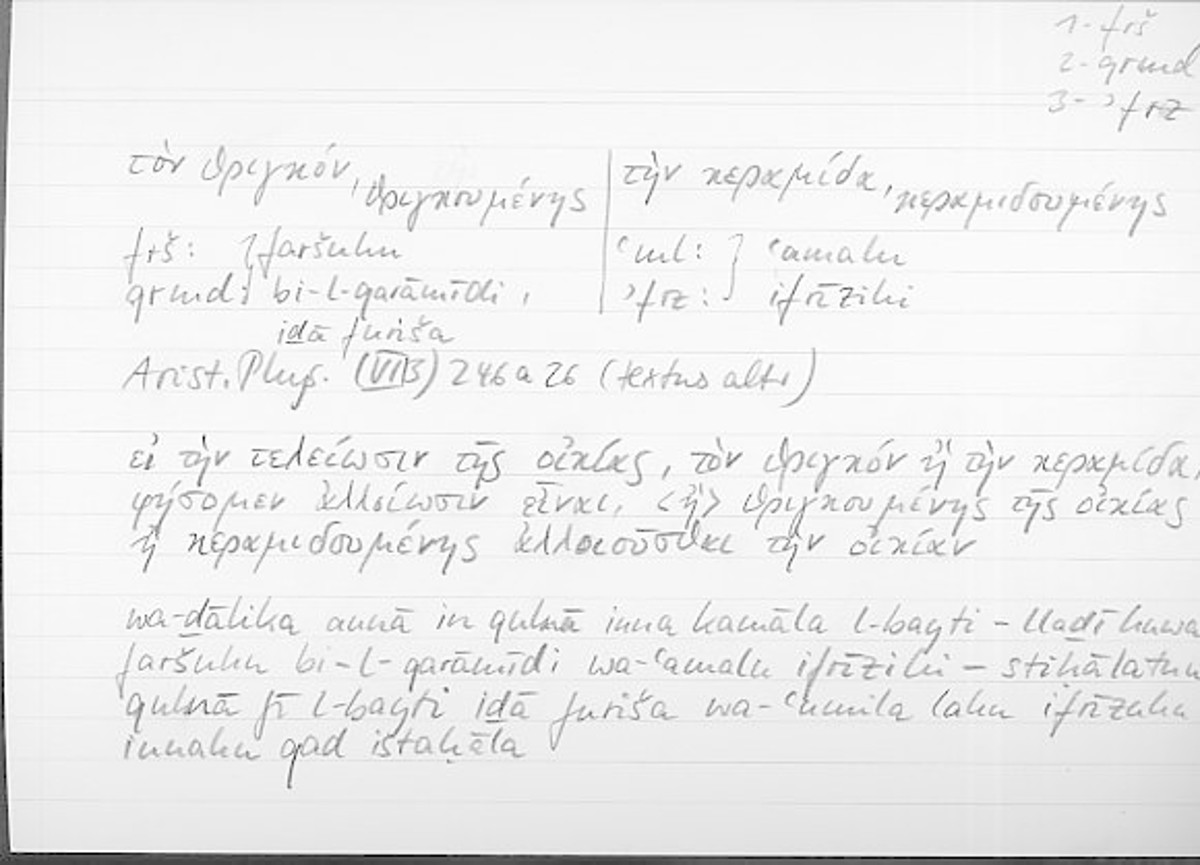 1- frš
2- qrmd
3- ʾfrz
τὸν θριγκόν, θριγκουμένης | τὴν κεραμίδα, κεραμιδουμένης
frš: } faršuhu | ʿml: } ʿamalu
qrmd: } bi-l-qarāmīdi, | ʾfrz: } ifrīzihi
iḏā furiša
Arist. Phys. (VII3) 246a26 (textus alt.)
εἰ τὴν τελείωσιν τῆς οἰκίας, τὸν θριγκόν ἢ τὴν κεραμίδα,
φήσομεν ἀλλοίωσιν εἶναι, <ἢ> θριγκουμένης τῆς οἰκίας
ἢ κεραμιδουμένης ἀλλοιοῦσθαι τὴν οἰκίαν
wa-ḏālika annā in qulnā inna kamāla l-bayti – llaḏī huwa
faršuhu bi-l-qarāmīdi wa-ʿamalu ifrīzihi – stiḥālatun
qulnā fī l-bayti iḏā furiša wa-ʿumila lahu ifrīzuhu
innahu qad istaḥāla